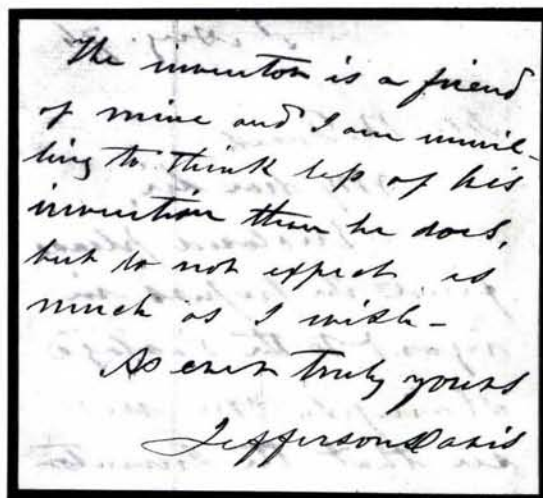 The inventor is a friend
of mine and I am unwil-
ling to think less of his
invention than he does,
but do not expect as
much as I wish -
As ever truly yours
Jefferson Davis